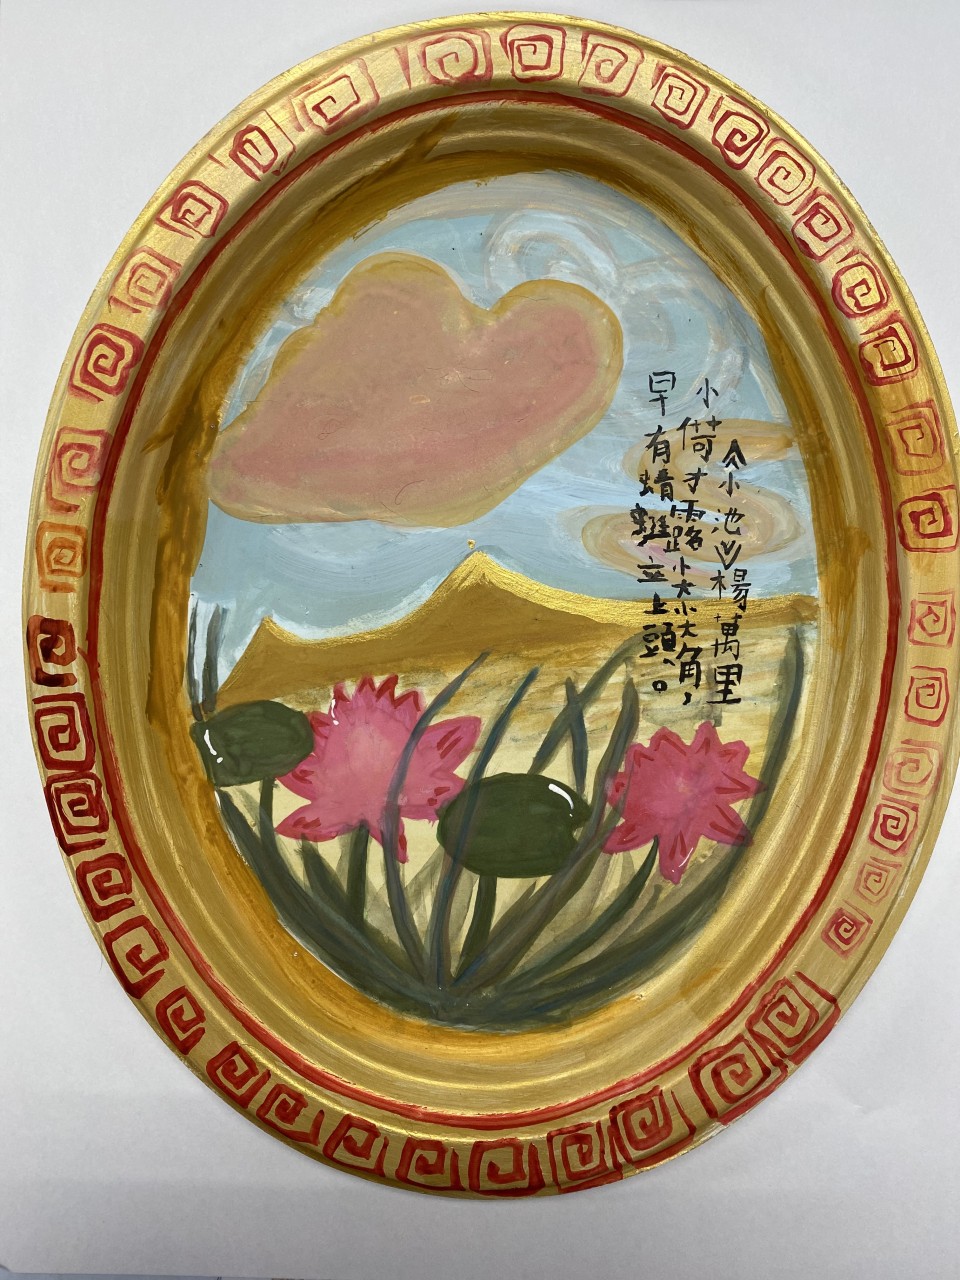 《小池》楊萬里
小荷才露尖尖角，
早有蜻蜓立上頭。